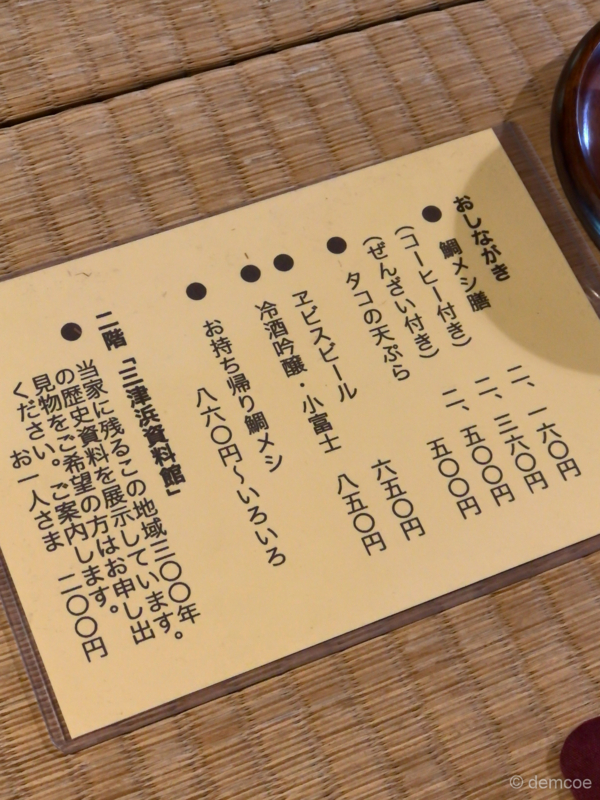 おしながき
● 鯛メシ膳 二、一六〇円
(コーヒー付き) 二、三六〇円
(ぜんざい付き) 二、五〇〇円
● タコの天ぷら 五〇〇円
● ヱビスビール 六五〇円
● 冷酒吟醸・小富士 八五〇円
● お持ち帰り鯛メシ
八六〇円〜いろいろ
● 二階「三津浜資料館」
当家に残るこの地域三〇〇年
の歴史資料を展示しています。
見物をご希望の方はお申し出
ください。ご案内します。
お一人さま 二〇〇円
© demcoe